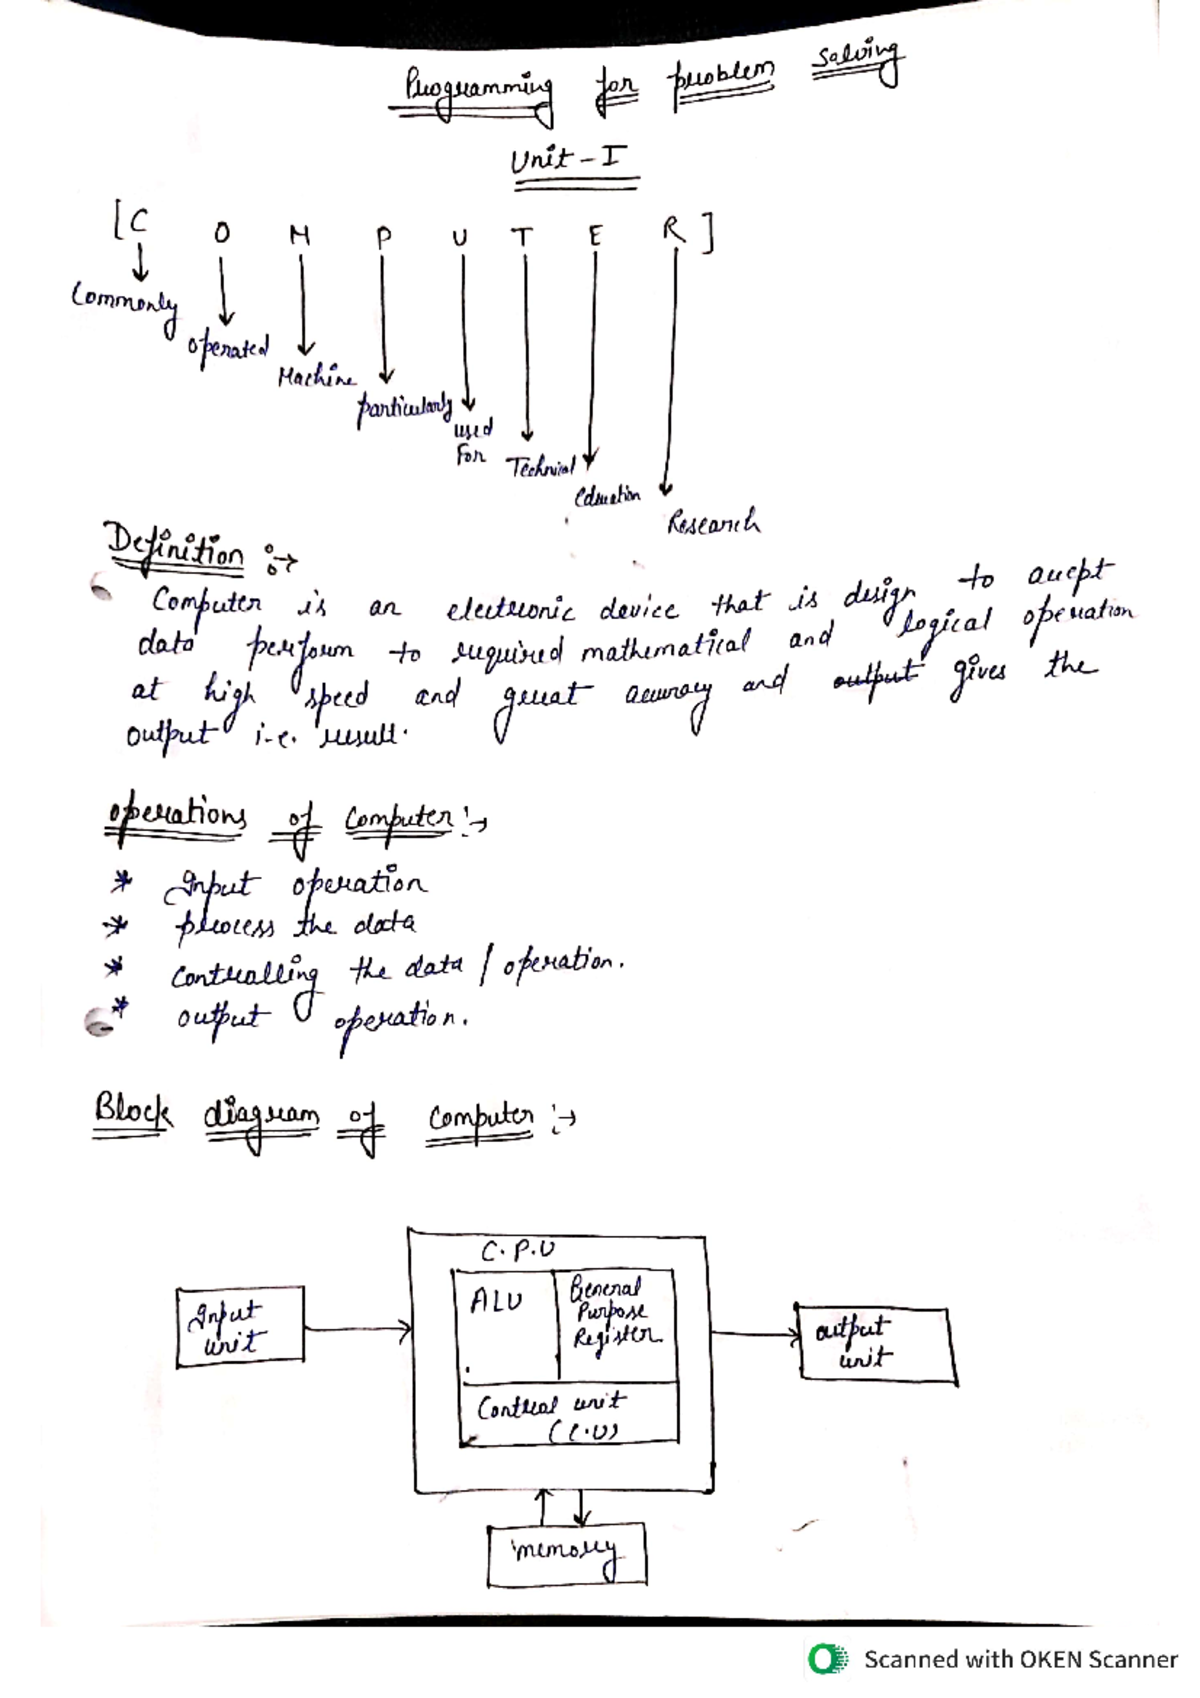 Programming for problem solving
Unit - I
[C O M P U T E R]
Commonly
operated
Machine
particularly
used
For
Technical
Education
Research
Definition :→
Computer is an electronic device that is design to accept
data perform to required mathematical and logical operation
at high speed and great accuracy and output gives the
output i.e. result.
operations of Computer :→
* Input operation
* process the data
* controlling the data / operation.
* output operation.
Block diagram of Computer :→
C.P.U
ALU
General
Purpose
Register
Input
unit
output
unit
Control unit
(C.U)
memory
Scanned with OKEN Scanner